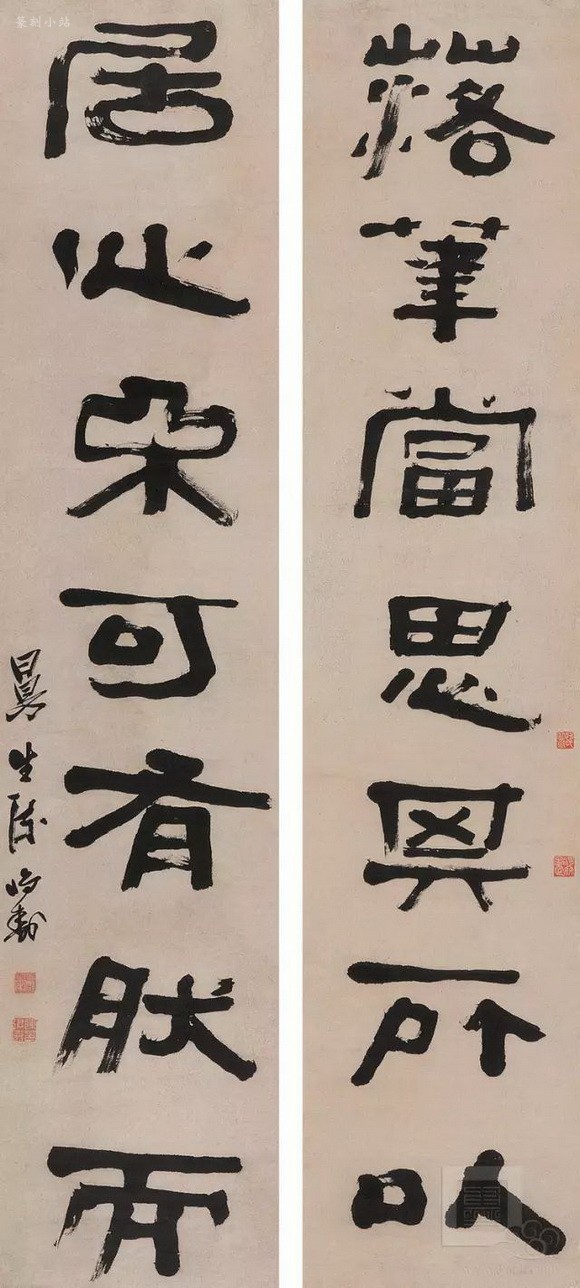 落筆當思其所以
居心可有肰而
曼生陳鴻壽
篆刻小站